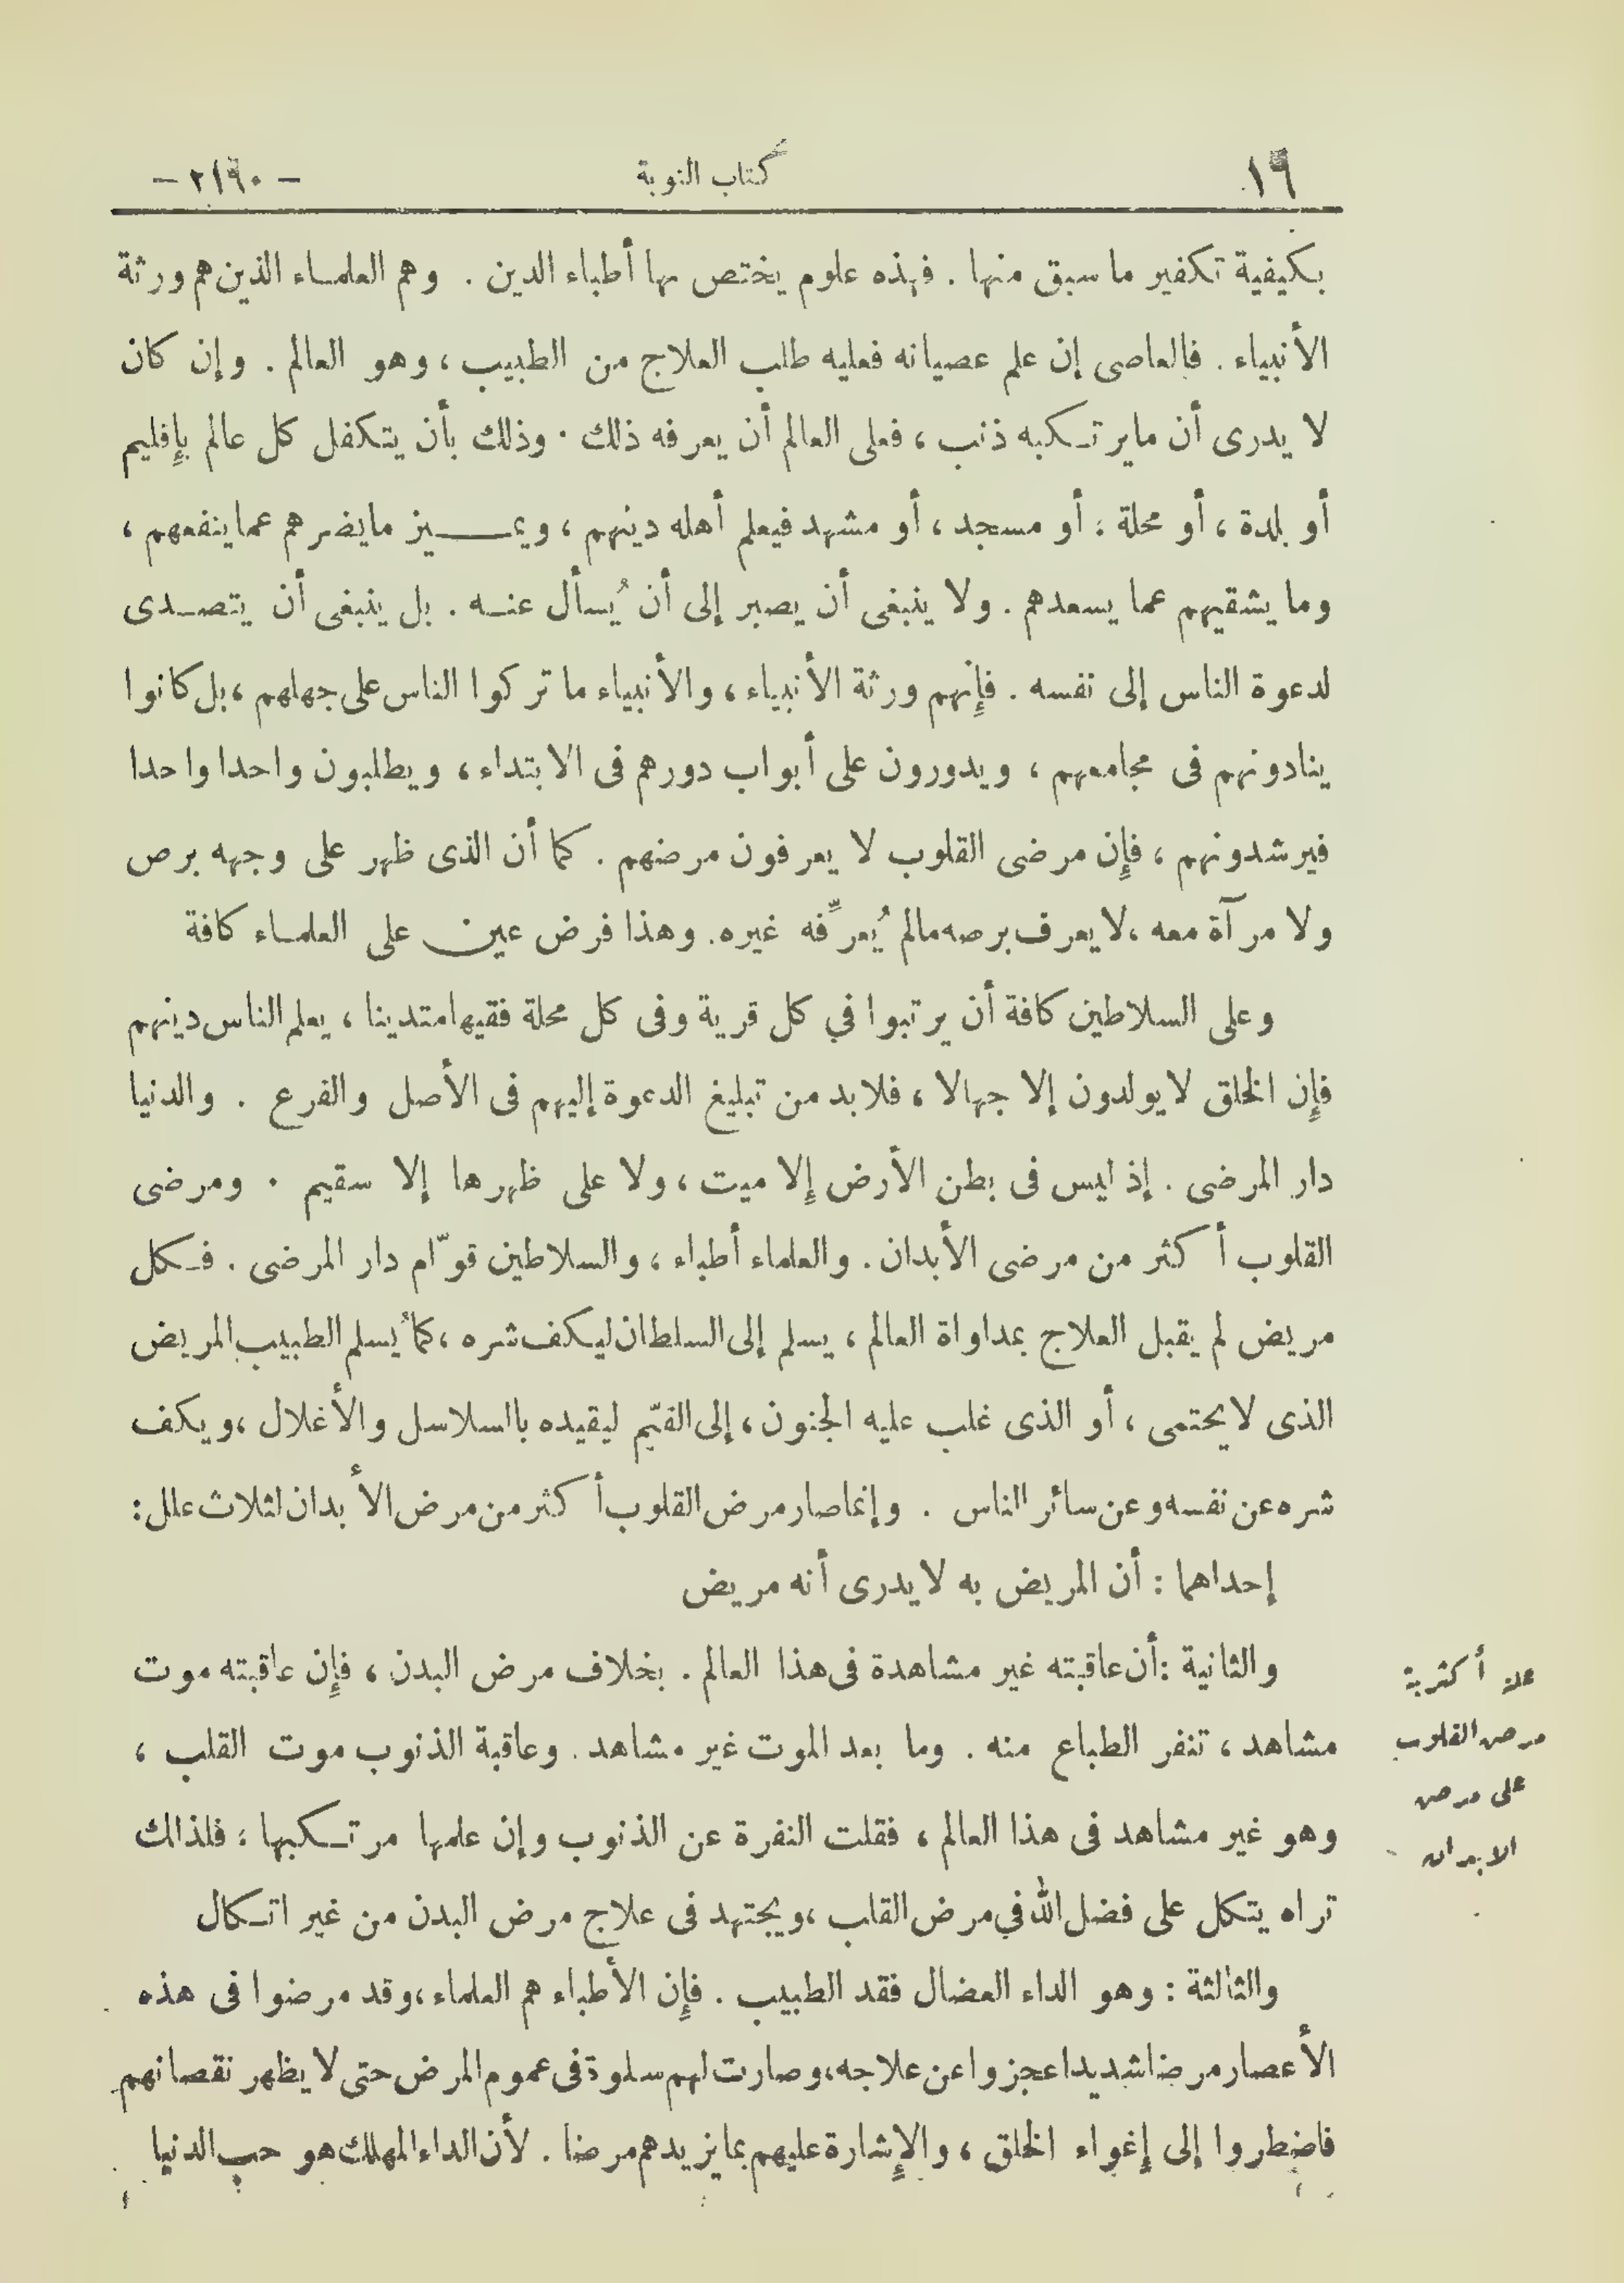 ١٩ كتاب التوبة — ٢١٩٠ —
بكيفية تكفير ما سبق منها . فهذه علوم يختص بها أطباء الدين . وهم العلماء الذين هم ورثة
الأنبياء . فالعاصى إن علم عصيانه فعليه طلب العلاج من الطبيب ، وهو العالم . وإن كان
لا يدرى أن مايرتكبه ذنب ، فعلى العالم أن يعرفه ذلك . وذلك بأن يتكفل كل عالم بإقليم
أو بلدة ، أو محلة ، أو مسجد ، أو مشهد فيعلم أهله دينهم ، ويميز مايضرهم عما ينفعهم ،
وما يشقيهم عما يسعدهم . ولا ينبغى أن يصبر إلى أن يُسأل عنه . بل ينبغى أن يتصدى
لدعوة الناس إلى نفسه . فإنهم ورثة الأنبياء ، والأنبياء ما تركوا الناس على جهلهم ، بل كانوا
ينادونهم فى مجامعهم ، ويدورون على أبواب دورهم فى الابتداء ، ويطلبون واحدا واحدا
فيرشدونهم ، فإن مرضى القلوب لا يعرفون مرضهم . كما أن الذى ظهر على وجهه برص
ولا مرآة معه ، لا يعرف برصه مالم يُعرِّفه غيره . وهذا فرض عين على العلماء كافة
وعلى السلاطين كافة أن يرتبوا في كل قرية وفى كل محلة فقيها متدينا ، يعلم الناس دينهم
فإن الخلق لا يولدون إلا جهالا ، فلابد من تبليغ الدعوة إليهم فى الأصل والفرع . والدنيا
دار المرضى . إذ ليس فى بطن الأرض إلا ميت ، ولا على ظهرها إلا سقيم . ومرضى
القلوب أكثر من مرضى الأبدان . والعلماء أطباء ، والسلاطين قوّام دار المرضى . فكل
مريض لم يقبل العلاج بمداواة العالم ، يسلم إلى السلطان ليكف شره ، كما يُسلم الطبيب المريض
الذى لا يحتمى ، أو الذى غلب عليه الجنون ، إلى القيّم ليقيده بالسلاسل والأغلال ، ويكف
شره عن نفسه وعن سائر الناس . وإنما صار مرض القلوب أكثر من مرض الأبدان لثلاث علل :
إحداهما : أن المريض به لا يدرى أنه مريض
والثانية : أن عاقبته غير مشاهدة فى هذا العالم . بخلاف مرض البدن ، فإن عاقبته موت
مشاهد ، تنفر الطباع منه . وما بعد الموت غير مشاهد . وعاقبة الذنوب موت القلب ،
وهو غير مشاهد فى هذا العالم ، فقلت النفرة عن الذنوب وإن علمها مرتكبها ، فلذلك
تراه يتكل على فضل الله في مرض القلب ، ويجتهد فى علاج مرض البدن من غير اتكال
والثالثة : وهو الداء العضال فقد الطبيب . فإن الأطباء هم العلماء ، وقد مرضوا فى هذه
الأعصار مرضا شديدا عجزوا عن علاجه ، وصارت لهم سلوة فى عموم المرض حتى لا يظهر نقصانهم
فاضطروا إلى إغواء الخلق ، والإشارة عليهم بما يزيدهم مرضا . لأن الداء المهلك هو حب الدنيا
علة أكثرية
مرض القلوب
على مرض
الابدان